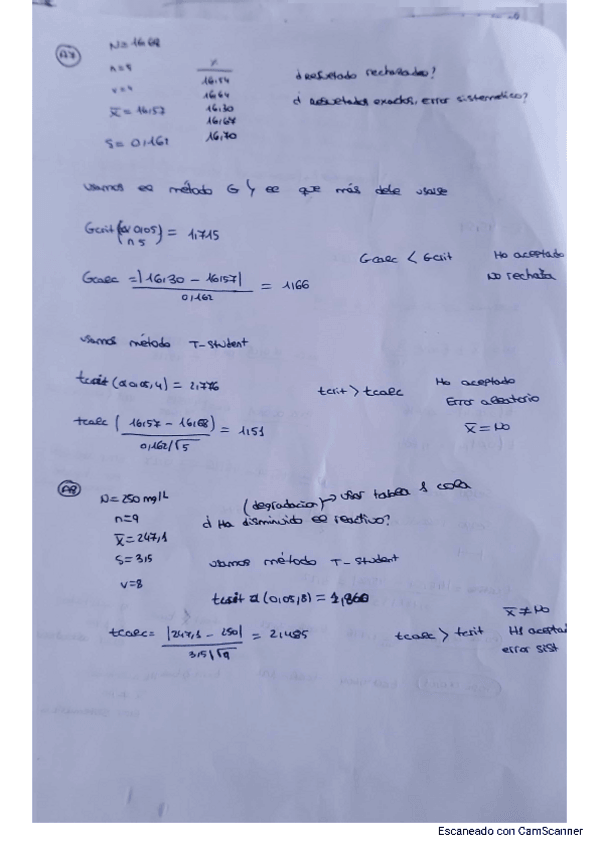 A7
N=16,68
n=5
v=4
x̄ = 16,57
s= 0,162
x
16,54
16,64
16,30
16,67
16,70
¿resultado rechazado?
¿ resultados exactos, error sistemático?
usamos el método G ↳ el que más debe usarse
Gcrit (α 0,05 n 5) = 1,715
Gcalc = |16,30 - 16,57| / 0,162 = 1,66
Gcalc < Gcrit
Ho aceptado
No rechaza
usamos método T-Student
tcrit (α 0,05, 4) = 2,776
tcrit > tcalc
Ho aceptado
Error aleatorio
x̄ = μo
tcalc ( 16,57 - 16,68 ) / 0,162/√5 = 1,51
A8
μ = 250 mg/L
n=9
x̄ = 247,1
s= 3,5
v=8
(degradacion) → usar tabla 1 cola
¿ Ha disminuido el reactivo?
usamos método T-Student
tcrit α (0,05, 8) = 1,860
tcalc = |247,1 - 250| / 3,5/√9 = 2,485
tcalc > tcrit
x̄ ≠ μo
H1 aceptad
error sist
Escaneado con CamScanner